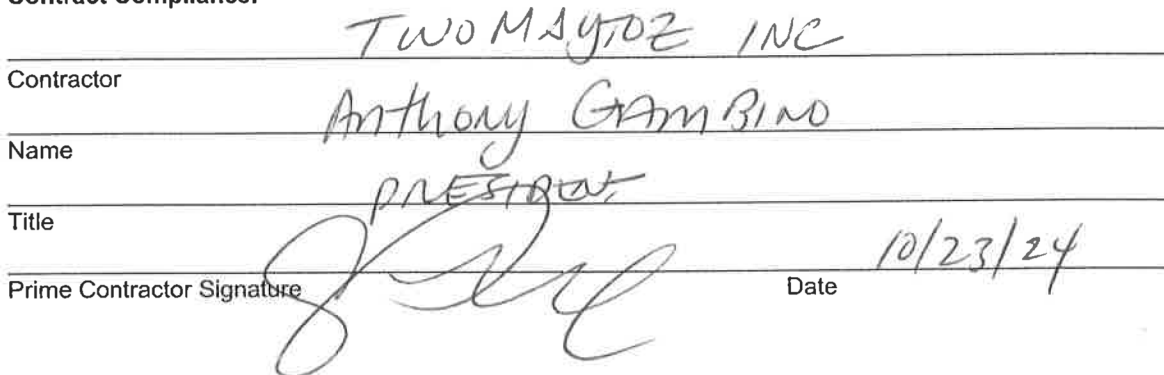 Contract Compliance.
TWO MAYTOZ INC
Contractor
Anthony GAMBINO
Name
PRESIDENT
Title
10/23/24
Prime Contractor Signature Date